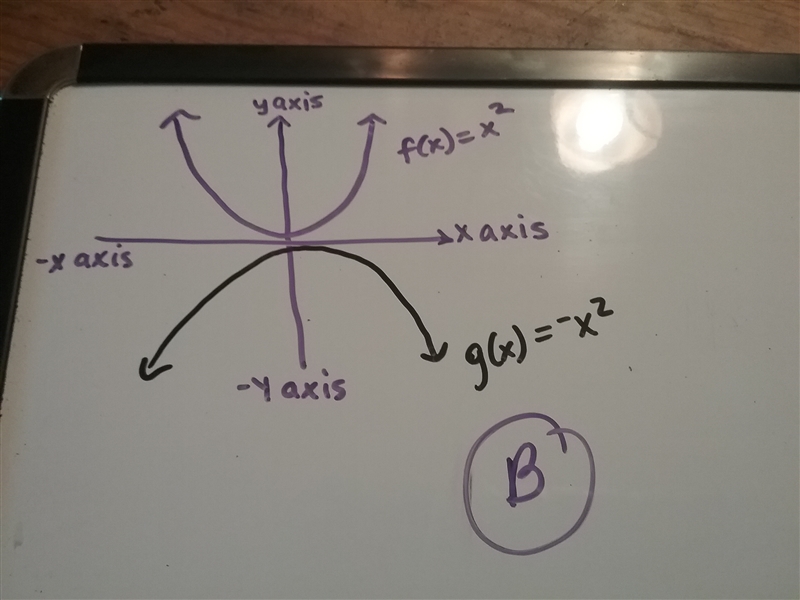 y axis
f(x)=x²
x axis
-x axis
g(x)=-x²
-y axis
B